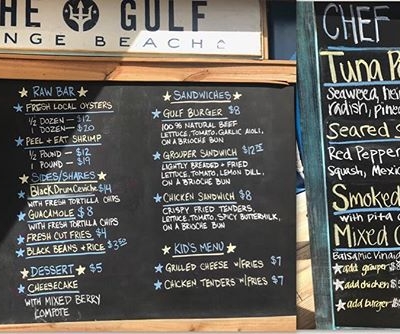 HE GULF
NGE BEACH
RAW BAR
FRESH LOCAL OYSTERS
1/2 DOZEN — $12
1 DOZEN — $20
PEEL + EAT SHRIMP
1/2 POUND — $12
1 POUND — $19
SIDES/SHARES
Black Drum Ceviche $14
WITH FRESH TORTILLA CHIPS
GUACAMOLE $8
WITH FRESH TORTILLA CHIPS
FRESH CUT FRIES $4
BLACK BEANS + RICE $3.50
DESSERT $5
CHEESECAKE
WITH MIXED BERRY
KOMPOTE
SANDWICHES
GULF BURGER $8
100% NATURAL BEEF
LETTUCE, TOMATO, GARLIC AIOLI,
ON A BRIOCHE BUN
GROUPER SANDWICH $12
LIGHTLY BREADED + FRIED
LETTUCE, TOMATO, LEMON DILL,
ON A BRIOCHE BUN
CHICKEN SANDWICH $8
CRISPY FRIED TENDERS
LETTUCE, TOMATO, SPICY BUTTERMILK,
ON A BRIOCHE BUN
KID'S MENU
GRILLED CHEESE W/FRIES $7
CHICKEN TENDERS W/FRIES $7
CHEF
Tuna Po
Seaweed,
radish, pine
Seared s
Red Pepper
Squash, Mexic
Smoked
with pita
Mixed G
Balsamic Vinai
add grouper $8
add chicken $5
add burger